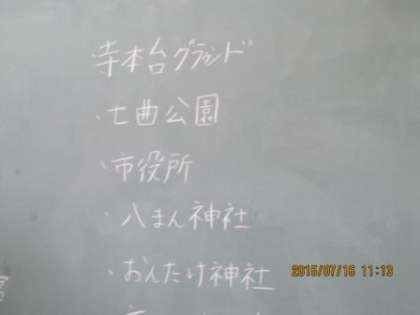 寺本台グランド
・七曲公園
・市役所
・八まん神社
・おんたけ神社
2015/07/16 11:13